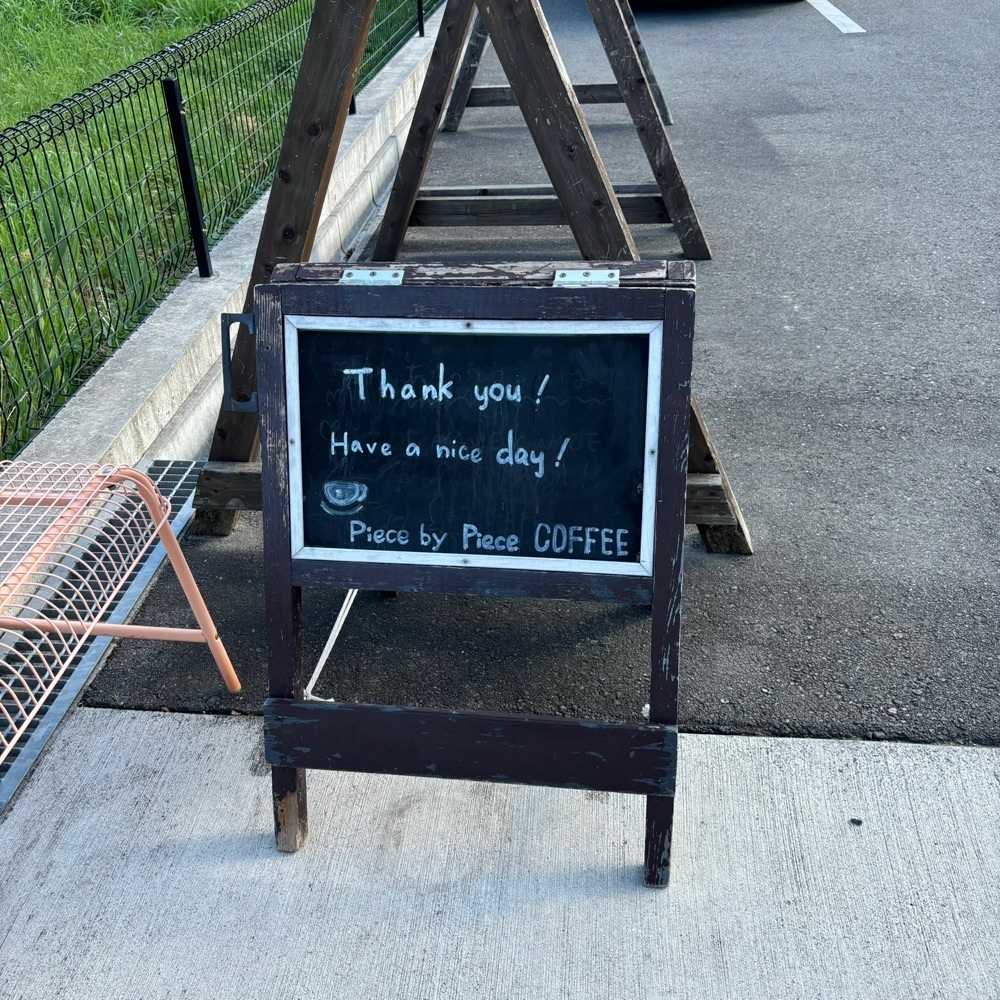 Thank you!
Have a nice day!
Piece by Piece COFFEE